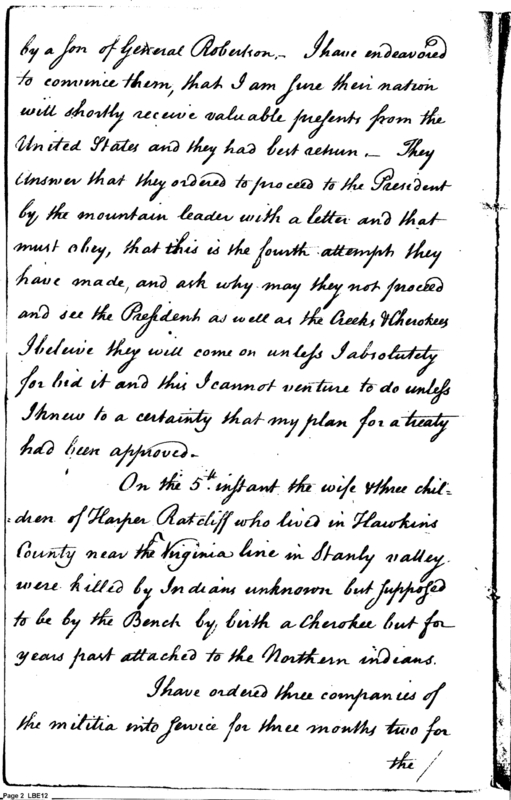 by a son of General Robertson,- I have endeavored
to convince them, that I am sure their nation
will shortly receive valuable presents from the
United States and they had best return,- They
answer that they ordered to proceed to the President
by the mountain leader with a letter and that
must obey, that this is the fourth attempt they
have made, and ask why may they not proceed
and see the President as well as the Creeks & Cherokees
I beleive they will come on unless I absolutely
forbid it and this I cannot venture to do unless
I knew to a certainty that my plan for a treaty
had been approved-
On the 5th instant the wife & three chil=
=dren of Harper Ratcliff who lived in Hawkins
County near the Virginia line in Stanly valley
were killed by Indians unknown but supposed
to be by the Bench by birth a Cherokee but for
years past attached to the Northern indians.
I have ordered three companies of
the militia into service for three months two for
the /
Page 2 LBE12